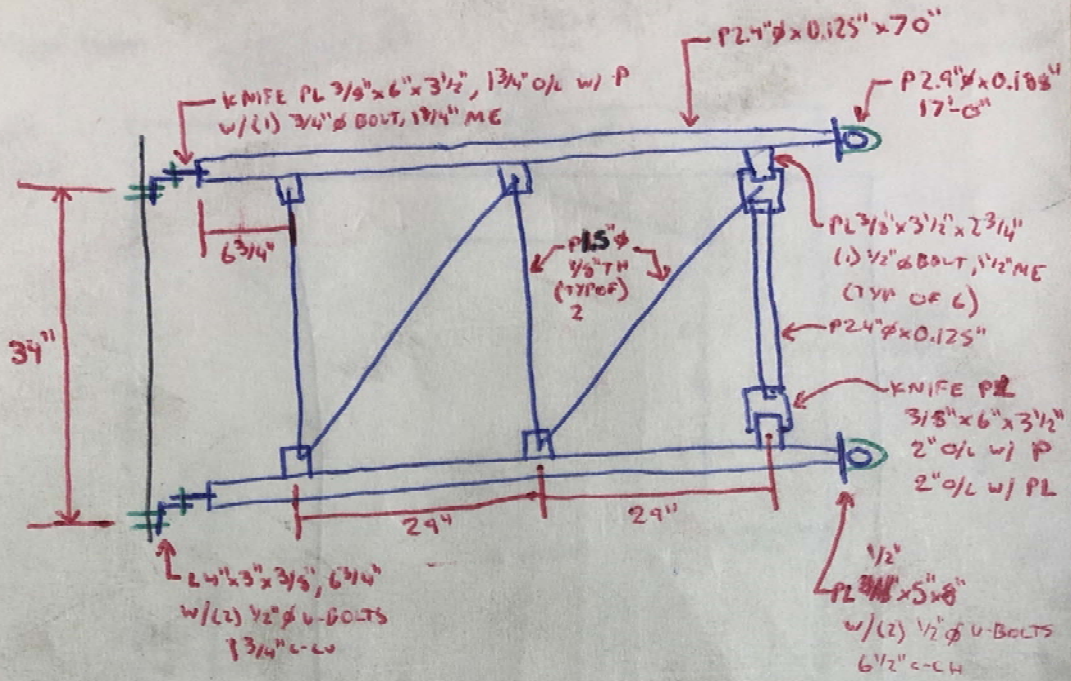 P2.4"ø x 0.125" x 70"
KNIFE PL 3/8" x 6" x 3 1/2", 1 3/4" O/L W/ P
W/(1) 3/4" ø BOLT, 1 3/4" ME
P2.9"ø x 0.188"
17'-0"
6 3/4"
P1.5"ø
1/8" TH
(TYP OF)
2
PL 3/8" x 3 1/2" x 2 3/4"
(1) 1/2" ø BOLT, 1 1/2" ME
(TYP OF 6)
P2.4"ø x 0.125"
34"
KNIFE PL
3/8" x 6" x 3 1/2"
2" O/L W/ P
2" O/L W/ PL
29"
29"
L 4" x 3" x 3/8", 6 3/4"
W/(2) 1/2" ø U-BOLTS
3/4"
1/2"
PL x 5" x 8"
W/(2) 1/2" ø U-BOLTS
6 1/2" C-C H